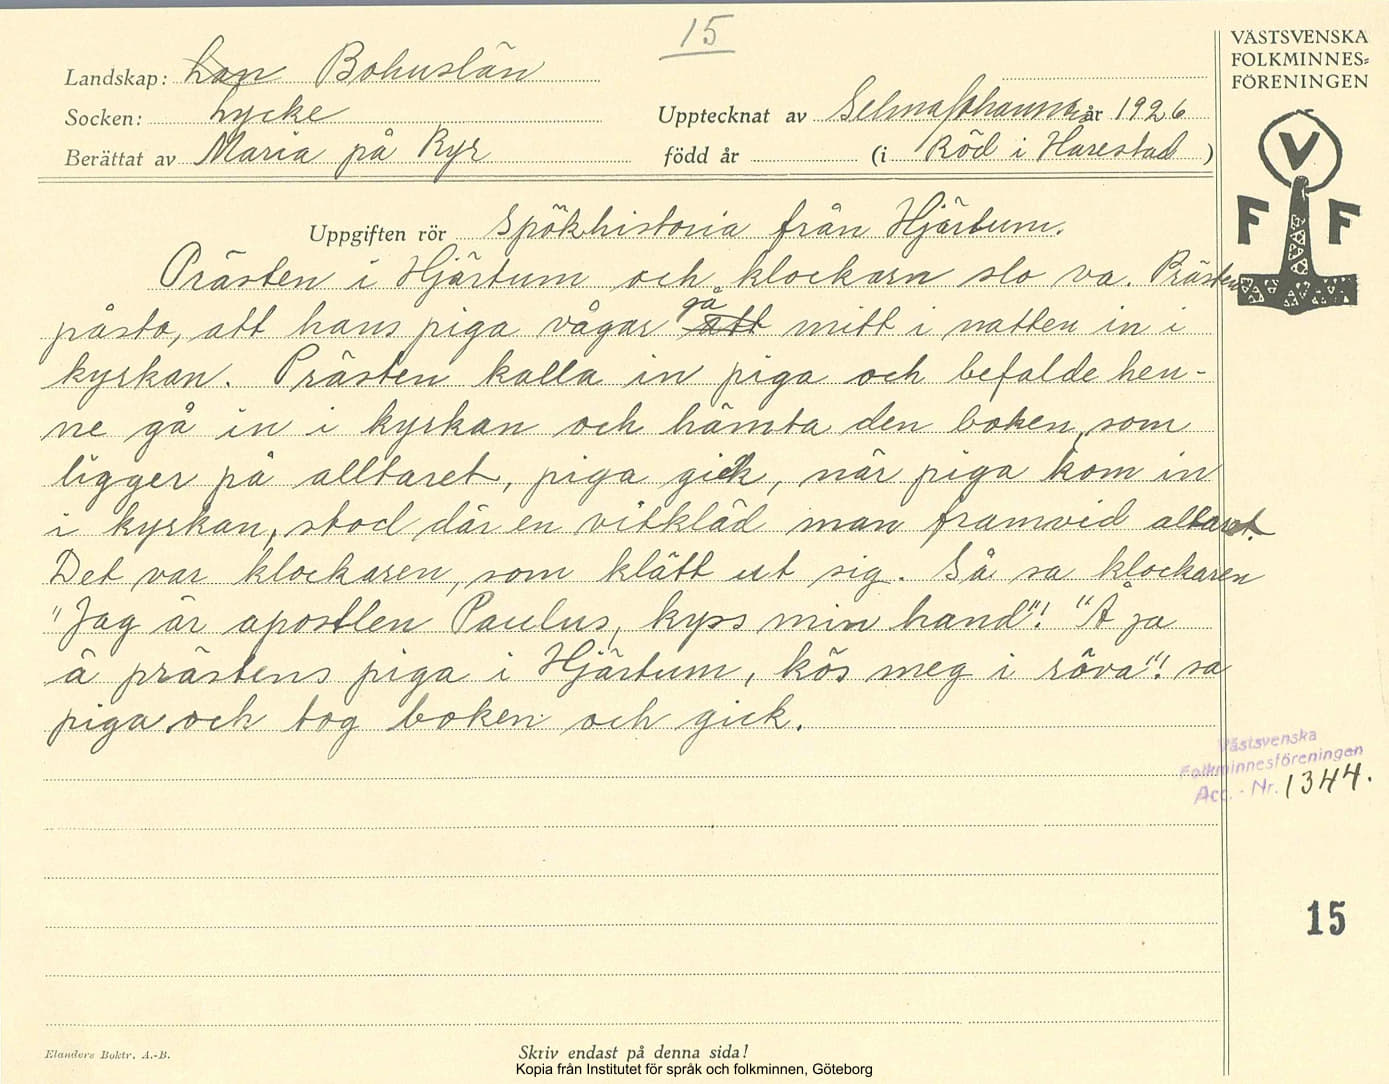 15
VÄSTSVENSKA
FOLKMINNES-
FÖRENINGEN
V
F F
Landskap: Lan Bohuslän
Socken: Lycke
Upptecknat av Selma Johansson år 1926
Berättat av Maria på Ryr
född år (i Röd i Harestad )
Uppgiften rör Spökhistoria från Hjärtum.
Prästen i Hjärtum och klockarn slo va. Prästen
påsto, att hans piga vågar att gå mitt i natten in i
kyrkan. Prästen kalla in piga och befalde hen-
ne gå in i kyrkan och hämta den boken, som
ligger på alltaret, piga gick, när piga kom in
i kyrkan, stod där en vitkläd man framvid altaret.
Det var klockaren, som klätt ut sig. Så sa klockaren
"Jag är apostlen Paulus, kyss min hand"! "Å ja
ä prästens piga i Hjärtum, kös meg i röva"! sa
piga och tog boken och gick.
Västsvenska
Folkminnesföreningen
Acc. - Nr. 1344.
15
Elanders Boktr. A.-B.
Skriv endast på denna sida!
Kopia från Institutet för språk och folkminnen, Göteborg